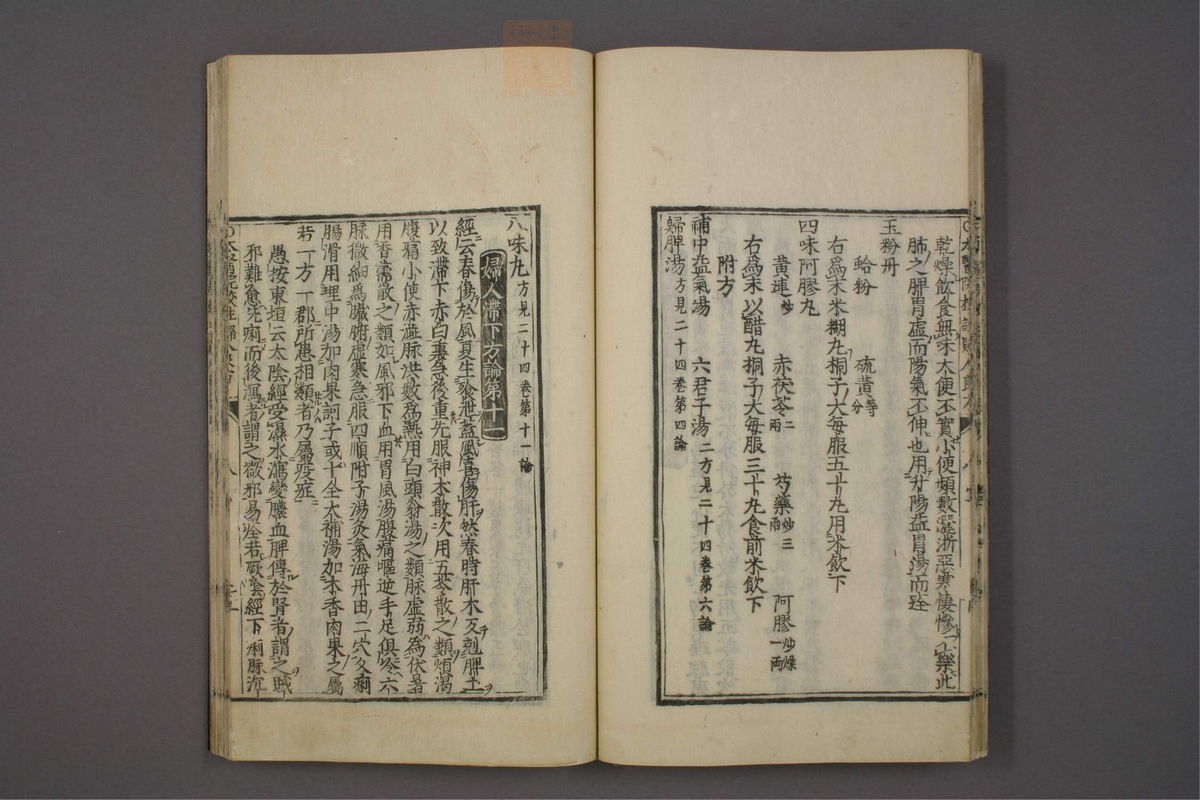 乾燥飲食無味大便不實小便頻數灑淅惡寒悽慘不樂此
肺之脾胃虛而陽氣不伸也用升陽益胃湯而痊
玉粉丹
蛤粉 硫黃等分
右爲末米糊丸桐子大每服五十丸用米飲下
四味阿膠丸
黃連炒 赤茯苓二兩 芍藥炒三兩 阿膠炒燥一兩
右爲末以醋丸桐子大每服三十丸食前米飲下
附方
補中益氣湯 六君子湯二方見二十四卷第六論
歸脾湯方見二十四卷第四論
八味丸方見二十四卷第十一論
婦人滯下方論第十一
經云春傷於風夏生飧泄蓋風傷肝然春時肝木又剋脾土
以致滯下赤白裏急後重先服神朮散次用五苓散之類煩渴
腹痛小便赤澁脉洪數爲熱用白頭翁湯之類脉虛弱爲伏暑
用香薷散之類如風邪下血用胃風湯腹痛嘔逆手足俱冷六
脉微細爲臟腑虛寒急服四順附子湯灸氣海丹田二穴久痢
腸滑用理中湯加肉果訶子或十全大補湯加木香肉果之屬
若一方一郡所患相類者乃屬疫症
愚按東垣云太陰經受濕水瀉變膿血脾傳於腎者謂之賊
邪難愈先痢而後瀉者謂之微邪易痊若厥陰經下痢脉沉